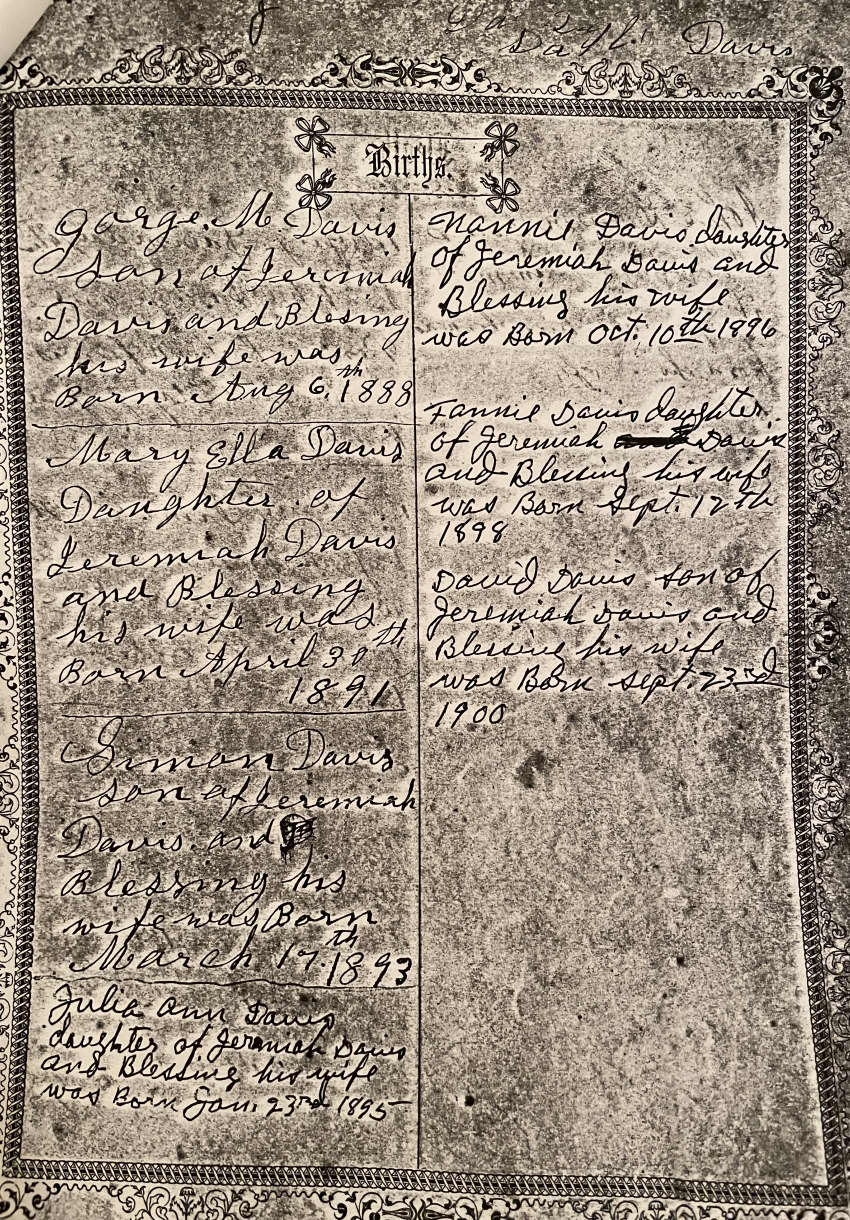 Davis
Births.
Gorge. M Davis
son of Jeremiah
Davis and Blesing
his wife was
Born Aug 6.th 1888
Mary Ella Davis
Daughter of
Jeremiah Davis
and Blessing
his wife was
Born April 30th
1891
Simon Davis
son of Jeremiah
Davis. and
Blessing his
wife was Born
March 17.th 1893
Julia Ann Davis
daughter of Jeremiah Davis
and Blessing his wife
was Born Jan. 23rd 1895
Nannie Davis daughter
of Jeremiah Davis and
Blessing his wife
was Born Oct. 10th 1896
Fannie Davis daughter
of Jeremiah Davis
and Blessing his wife
was Born Sept. 12th
1898
David Davis son of
Jeremiah Davis and
Blessing his wife
was Born Sept. 23rd
1900